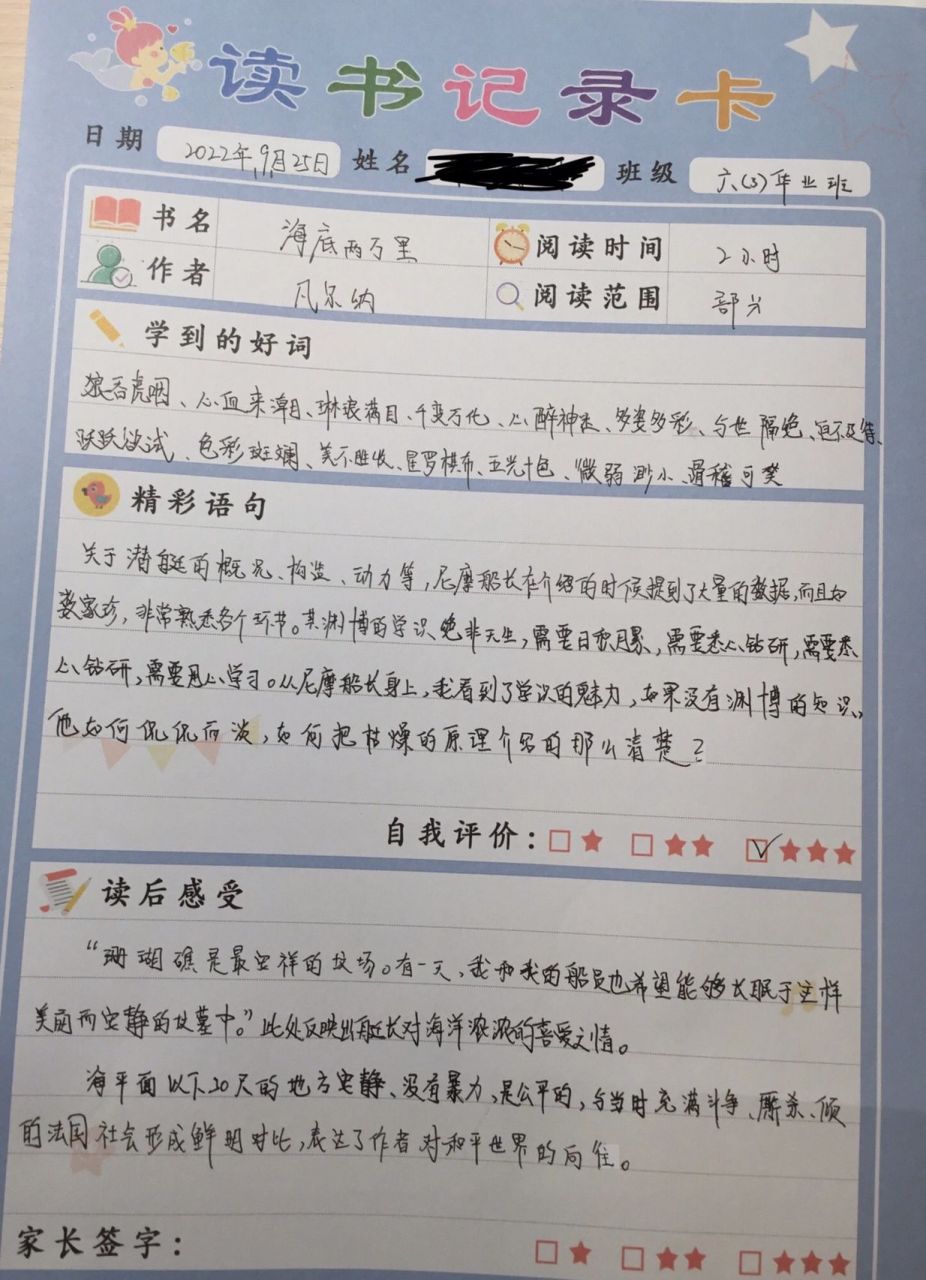 读书记录卡
日期 2022年9月25日 姓名 班级 六(3)年业班
书名 海底两万里 阅读时间 2小时
作者 凡尔纳 阅读范围 部分
学到的好词
狼吞虎咽、心血来潮、琳琅满目、千变万化、心醉神迷、多姿多彩、与世隔绝、迫不及待、
跃跃欲试、色彩斑斓、美不胜收、星罗棋布、五光十色、微弱渺小、滑稽可笑
精彩语句
关于潜艇的概况、构造、动力等，尼摩船长在介绍的时候提到了大量的数据，而且如
数家珍，非常熟悉各个环节。其渊博的学识绝非天生，需要日积月累，需要悉心钻研，需要悉
心钻研，需要用心学习。从尼摩船长身上，我看到了学识的魅力，如果没有渊博的知识，
他如何侃侃而谈，如何把枯燥的原理介绍的那么清楚？
自我评价：
读后感受
“珊瑚礁是最安祥的坟场。有一天，我和我的船员也希望能够长眠于这样
美丽而安静的坟墓中。”此处反映出艇长对海洋浓浓的喜爱之情。
海平面以下20尺的地方安静、没有暴力，是公平的，与当时充满斗争、厮杀、倾
的法国社会形成鲜明对比，表达了作者对和平世界的向往。
家长签字：